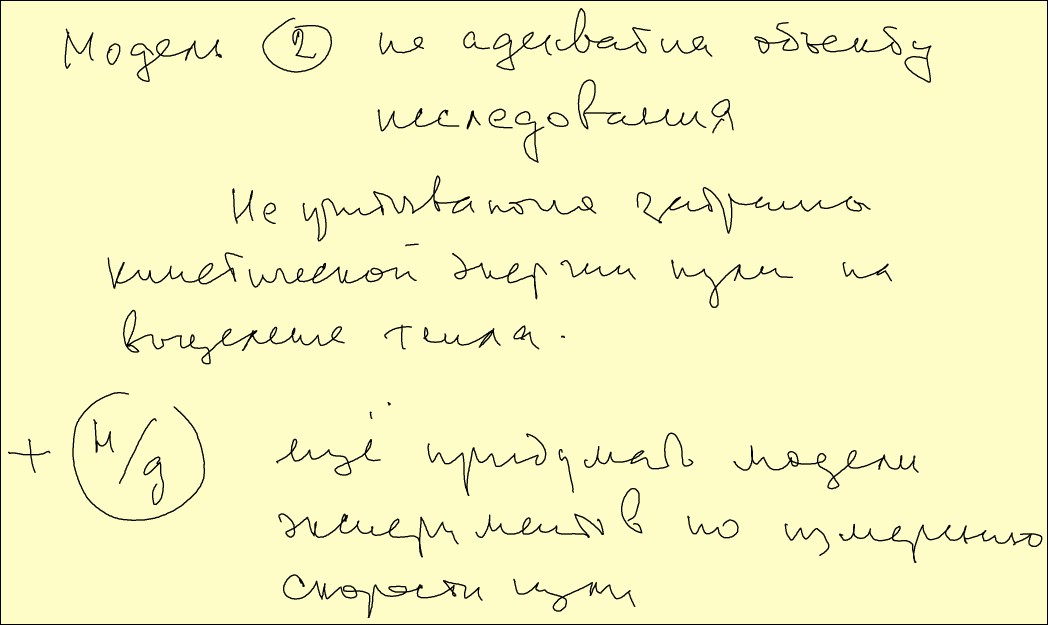 Модель ② не адекватна объекту
исследования
Не учитываются затраты
кинетической энергии пули на
выделение тепла.
+ н/д ещё придумать модели
экспериментов по измерению
скорости пули